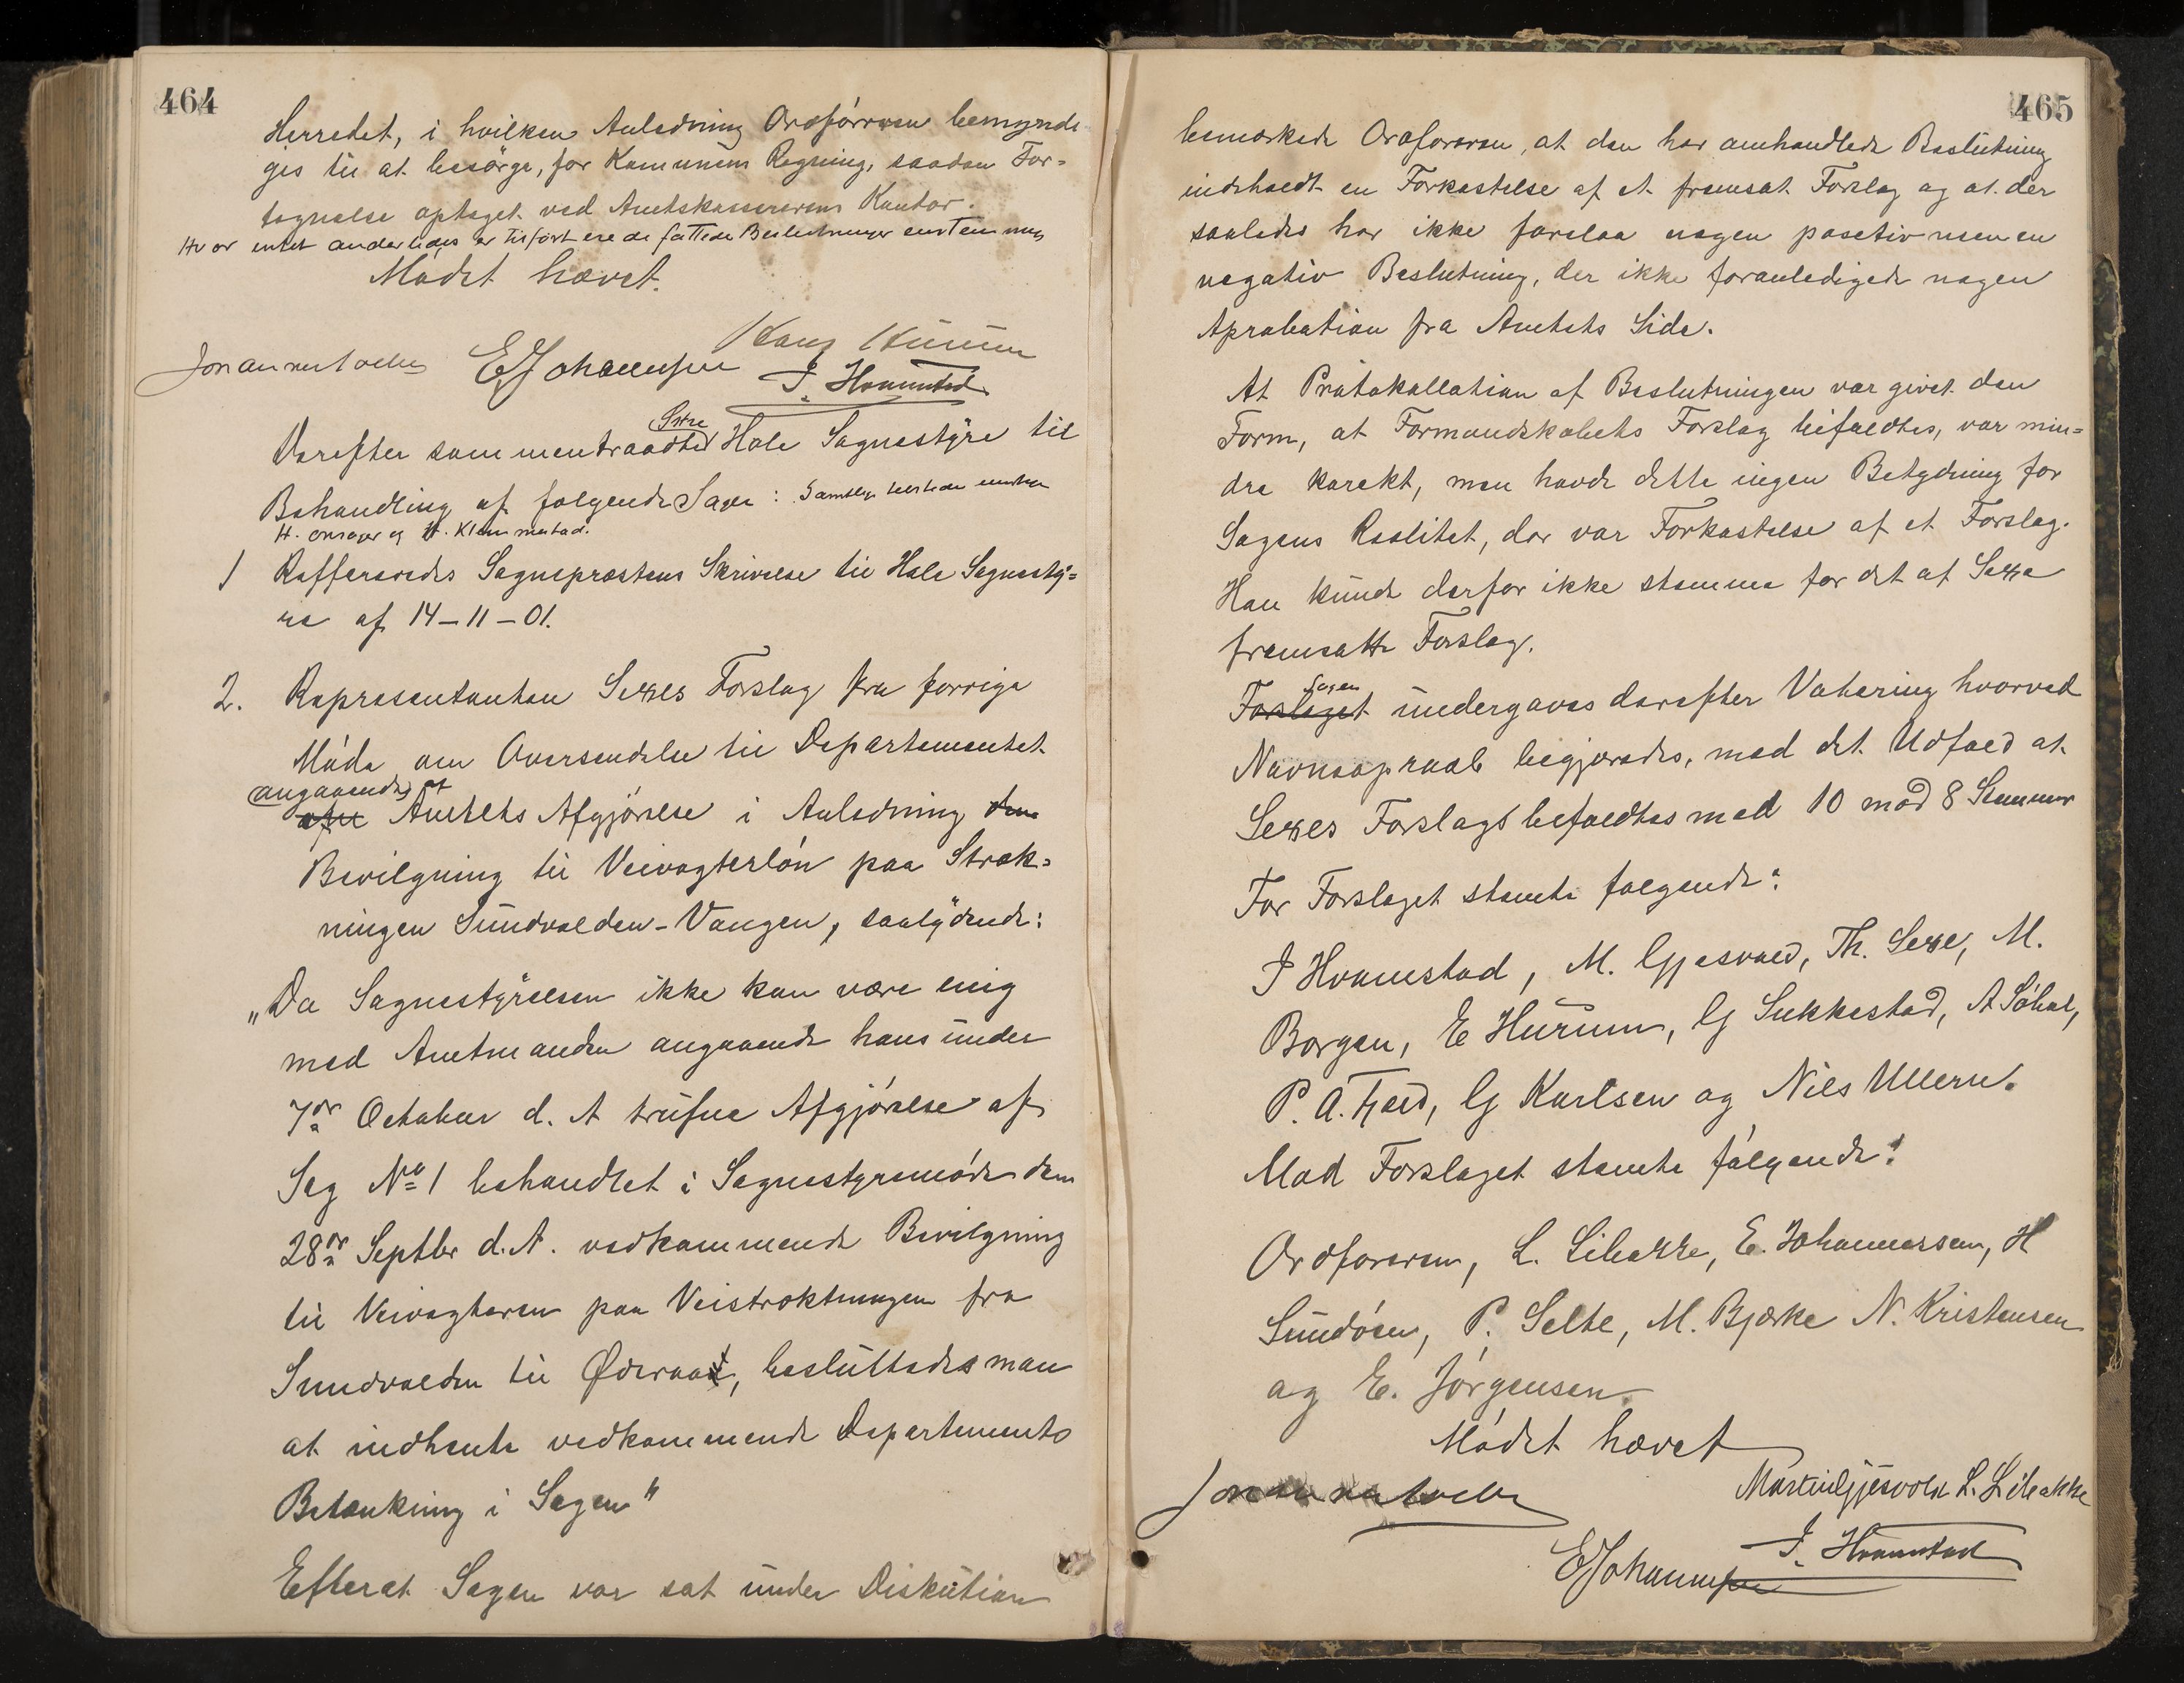 464
Herredet, i hvilken Anledning Ordføreren bemyndi
ges til at besørge, for Kommunens Regning, saadan For=
tegnelse optaget ved Amtskassererens Kontor.
Hvor intet anderledes er tilført ere de fattede Beslutninger enstemmig
Mødet hævet.
Hans Hurum
E Johannessen I. Hvamstad
Sitre
Derefter sammentraadte Hole Sognestyre til
Behandling af følgende Sager: Samtlige tilstede undtagen
H. Onsager og H. Klemmetsrud.
1 Reffereredes Sogneprestens Skrivelse til Hole Sognesty=
re af 14-11-01.
2. Representanten Sexes Forslag fra forrige
Møde om Oversendelse til Departementet
angaaende af
Amtets Afgjørelse i Anledning den
Bevilgning til Veivogterløn paa Stræk=
ningen Sundvolden-Vangen, saalydende:
„Da Sognestyrelsen ikke kan være enig
med Amtmanden angaaende hans under
7de October d. A trufne Afgjørelse af
Sag No 1 behandlet i Sognestyremøde den
28de Septbr d. A. vedkommende Bevilgning
til Veivogteren paa Veistrækningen fra
Sundvolden til Øderaa, besluttedes man
at indhente vedkommende Departements
Betænkning i Sagen"
Efterat Sagen var sat under Diskution
465
bemærkede Ordføreren, at den her omhandlede Beslutning
indeholdt en Forkastelse af et fremsat Forslag og at der
saaledes her ikke forelaa nogen posetiv men en
negativ Beslutning, der ikke foranledigede nogen
Aprobation fra Amtets Side.
At Protokollation af Beslutningen var givet den
Form, at Formandskabets Forslag bifaldtes, var min=
dre korekt, men havde dette ingen Betydning for
Sagens Realitet, der var Forkastelse af et Forslag.
Han kunde derfor ikke stemme for det af Sexe
fremsatte Forslag.
Sagen
Forslaget undergaves derefter Votering hvorved
Navneopraab begjæredes, med det Udfald at
Sexes Forslag befaldtes med 10 mod 8 Stemmer
For Forslaget stemte følgende:
I Hvamstad, M. Gjesvold, Th. Sexe, M.
Borgen, E Hurum, G Sukkestad, A Søhol,
P. A. Fjeld, G Karlsen og Nils Ullern.
Mod Forslaget stemte følgende:
Ordføreren, L. Libakke, E. Johannessen, H
Sundøen, P. Selte, M. Bjørke N. Kristensen
og E. Jørgensen.
Mødet hævet
Martin Gjesvold L. Libakke
I. Hvamstad
E Johannessen